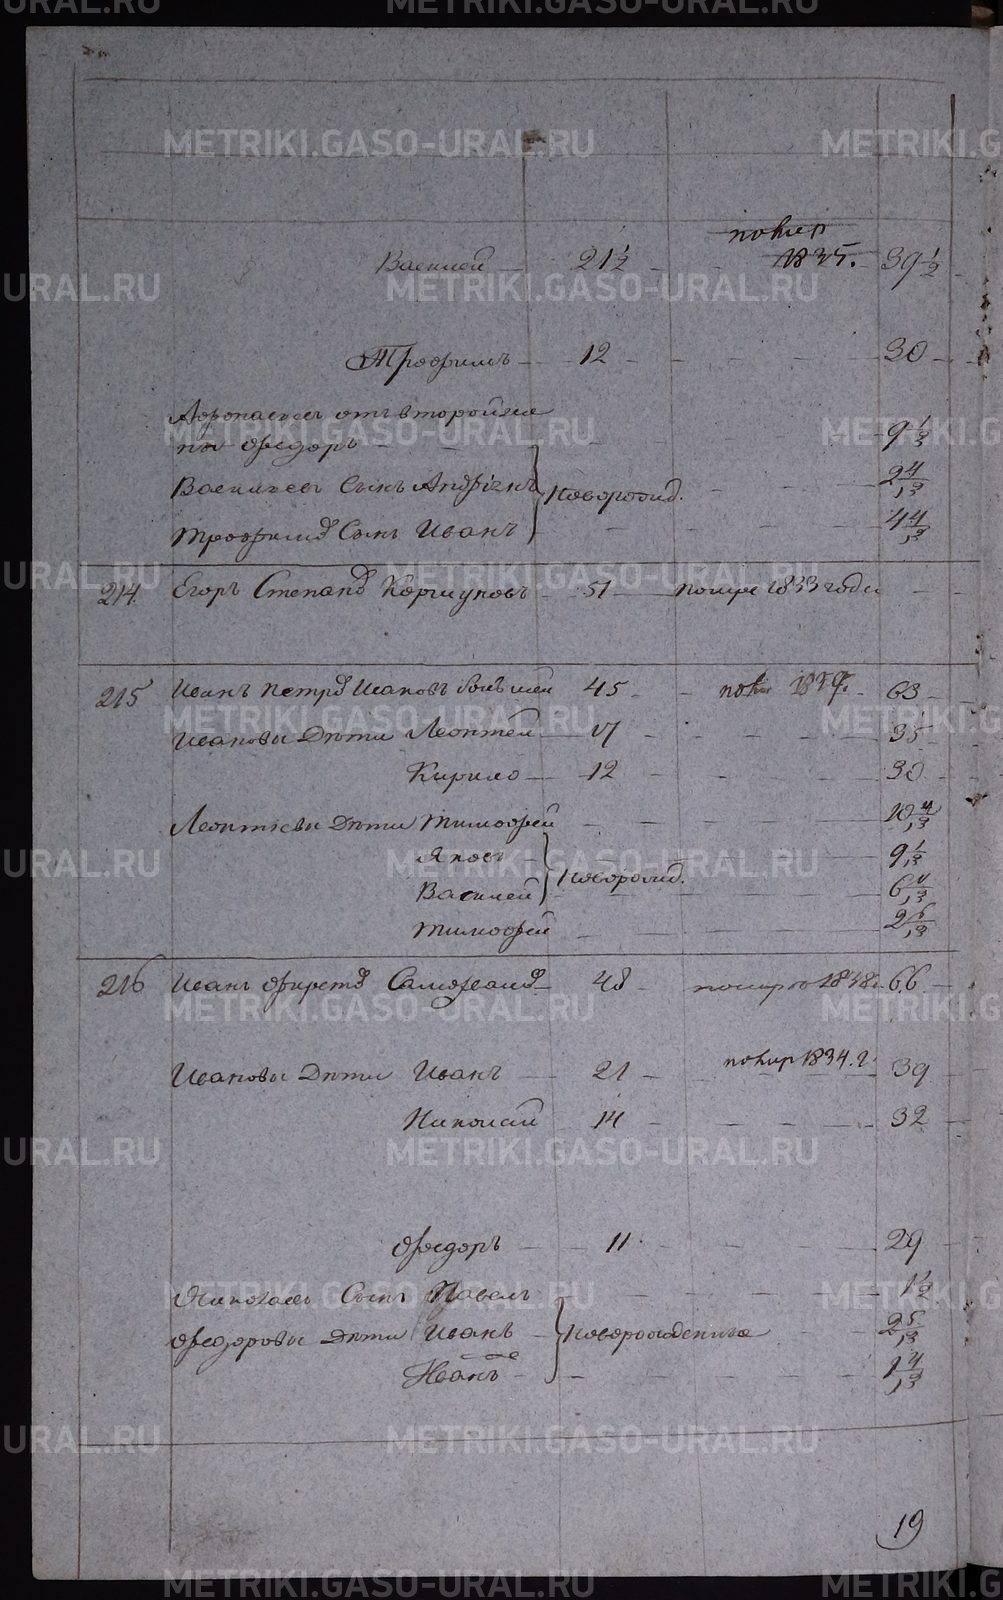 помер
Василей 21½ 1835. 39½
Трофимъ 12 30
Афонасьевъ отъ второй же
ны Федоръ 9 1/2
Васильевъ Сынъ Андріянъ Новорожд. 2 4/12
Трофимо Сынъ Иванъ 4 4/12
214. Егоръ Степано Коршуновъ 51 помре 1833 года
215 Иванъ Петро Ивановъ большей 45 помер 63
Ивановы Дети Леонтей 17 35
Кирило 12 30
Леонтьевы Дети Тимофей 10 4/12
Яковъ 9 1/2
Новорожд.
Василей 6
Тимофей 2 6/12
216 Иванъ 48 помер 1848 66
Ивановы Дети Иванъ 21 помер 1834. г. 39
Николай 14 32
Федоръ 11 29
Николаевъ Сынъ Павелъ 1½
Федоровы дети Иванъ Новорожденные 2 5/12
Иванъ 1 4/12
19
METRIKI.GASO-URAL.RU